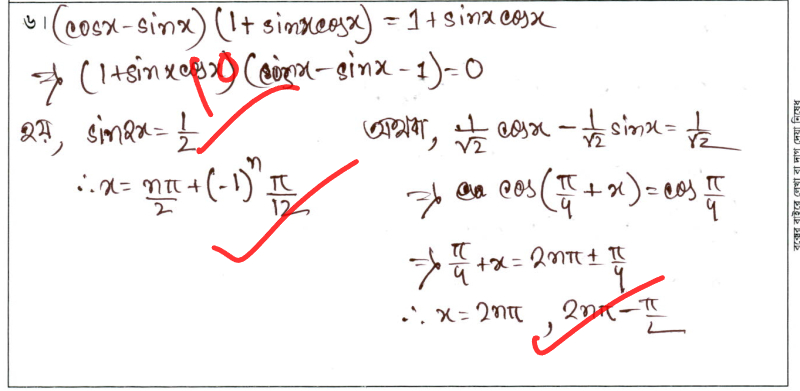 ৬। (cosx - sinx) (1 + sinxcosx) = 1 + sinx cosx
⇒ (1 + sinx cosx) (cosx - sinx - 1) = 0
10
হয়, sin2x = 1/2
∴ x = nπ/2 + (-1)^n π/12
অথবা, 1/√2 cosx - 1/√2 sinx = 1/√2
⇒ cos(π/4 + x) = cos π/4
⇒ π/4 + x = 2nπ ± π/4
∴ x = 2nπ , 2nπ - π/2